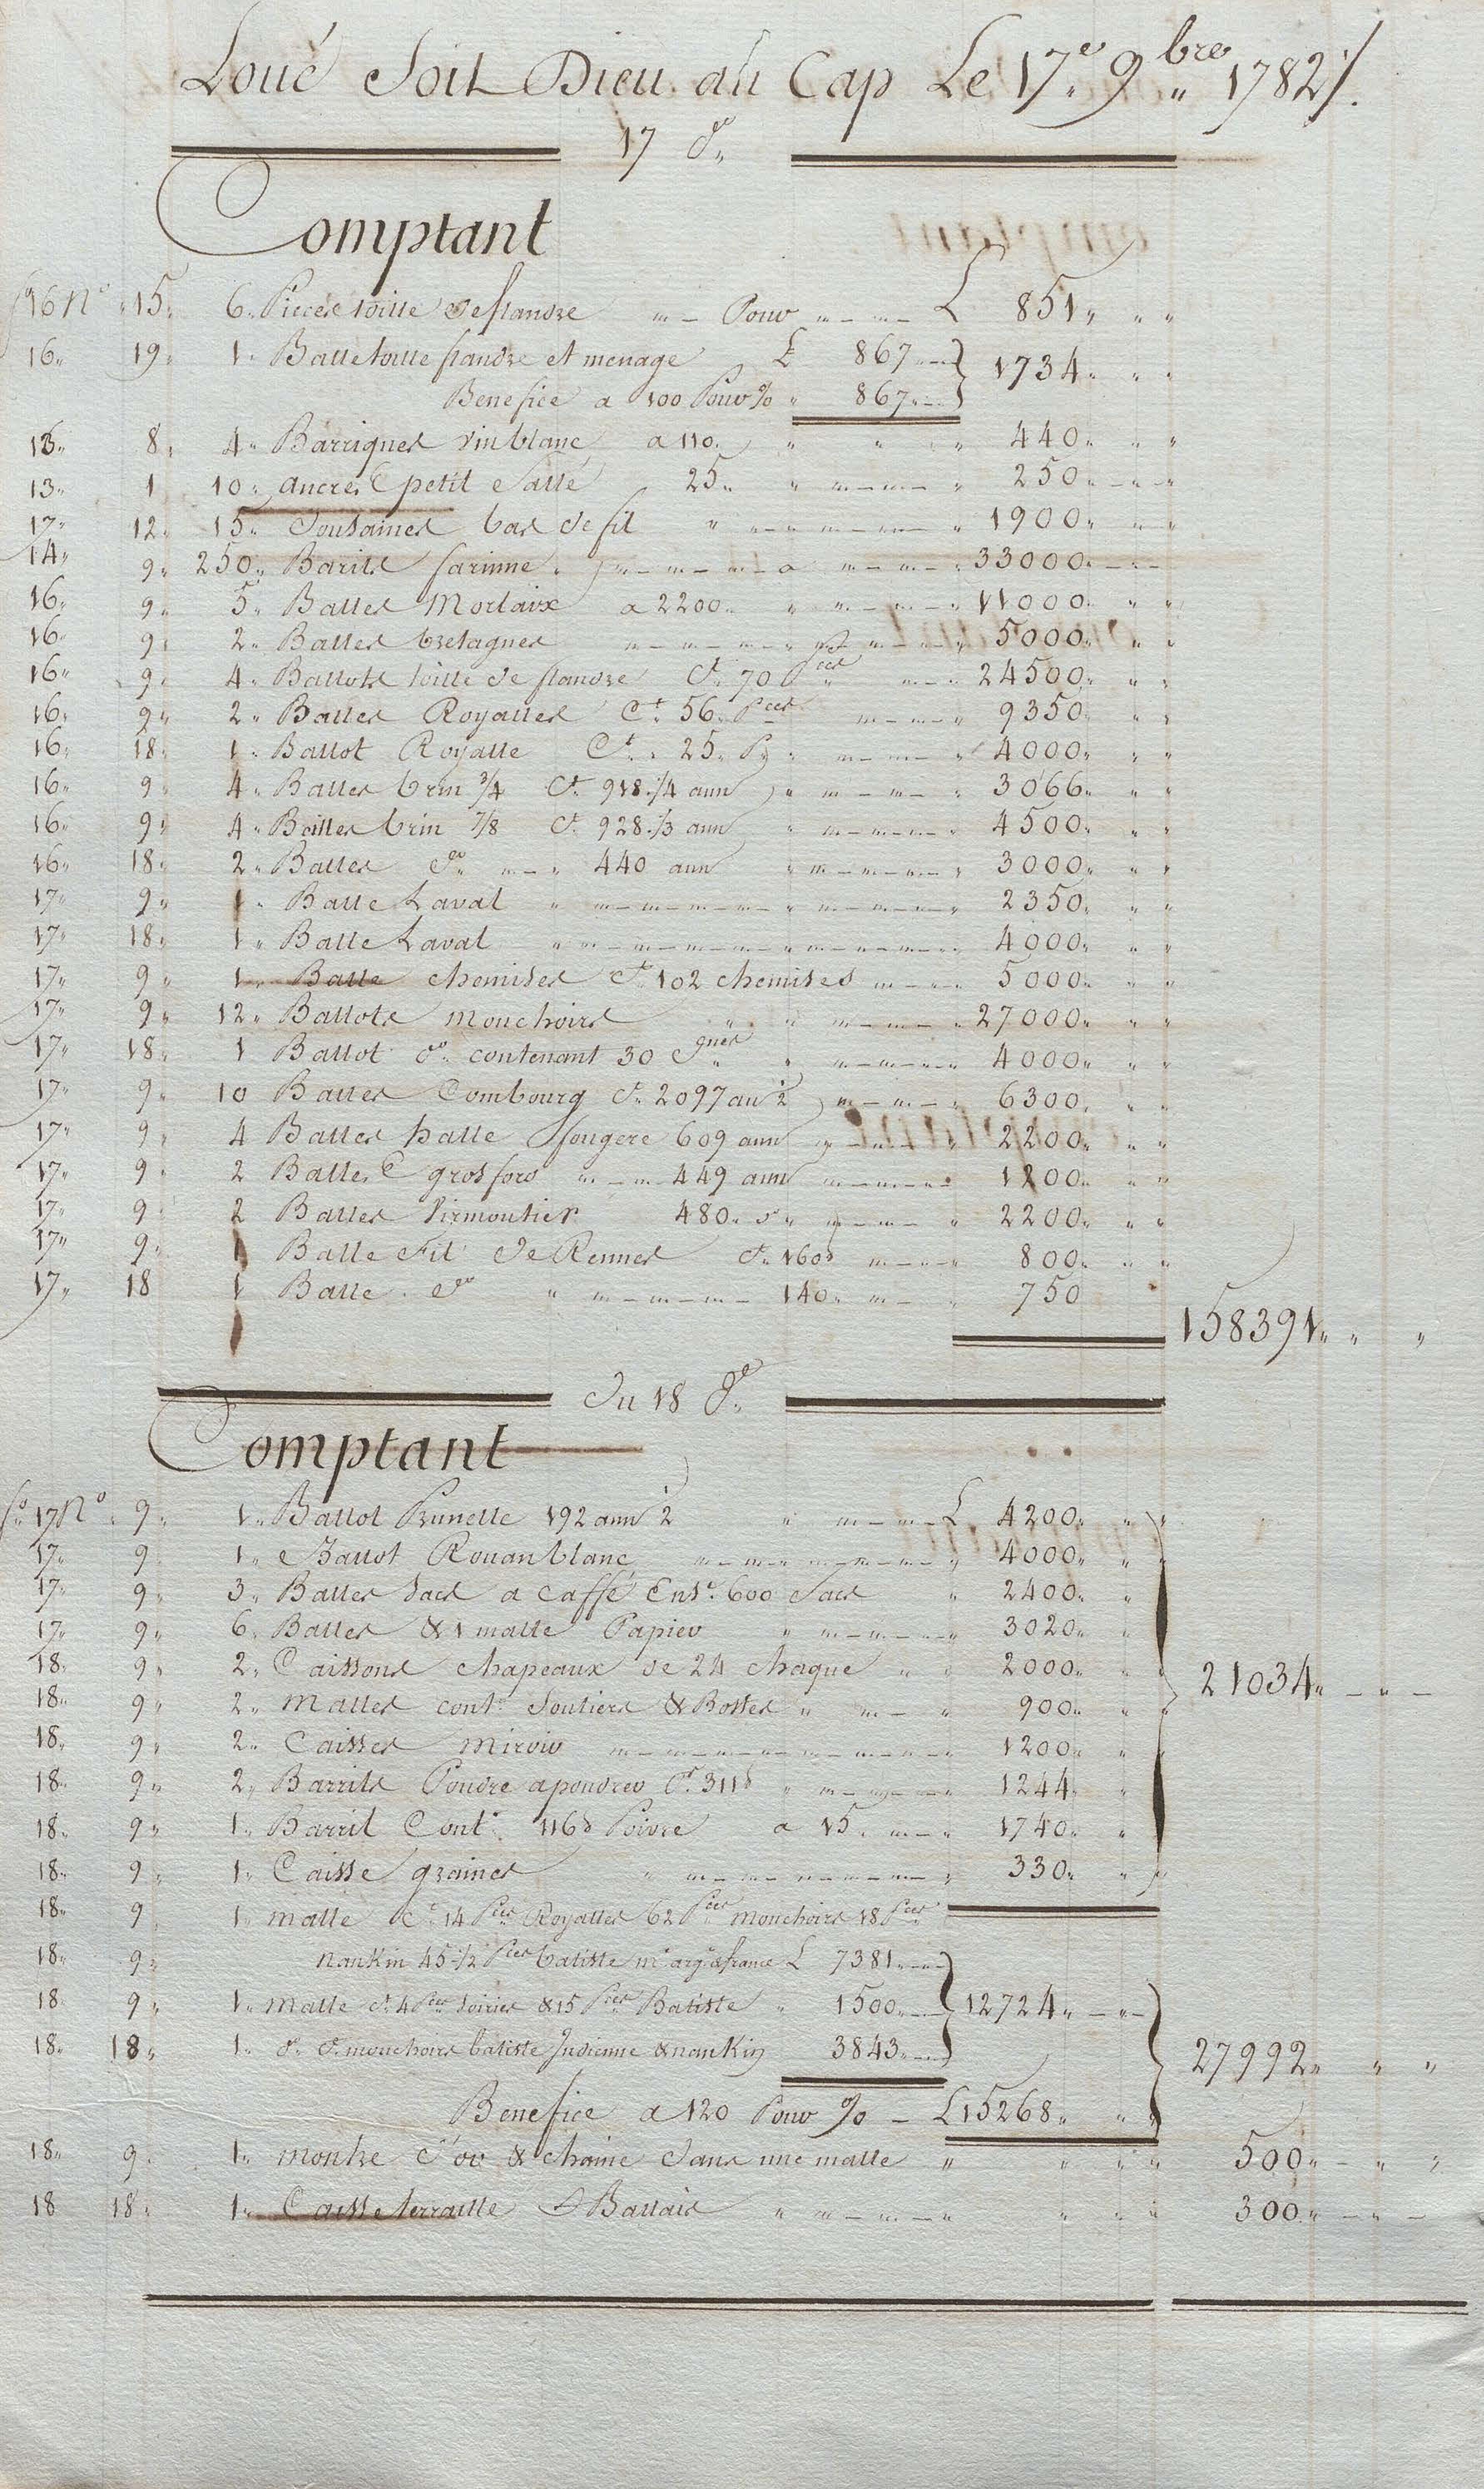 Loué Soit Dieu au Cap Le 17e 9bre 1782 /.
17 do
Comptant
fo 16 No 15 6 Pieces toille de flandre Pour £ 851
16 19 1 Balle toille flandre et menage £ 867 } 1734
Benefice a 100 Pour % 867
13 8 4 Barriques vin blanc a 110 440
13 1 10 ancres petit Sallé 25 250
17 12 15 Douzaines bas de fil 1900
14 9 250 Barils farinne a 33000
16 9 5 Balles Morlaix a 2200 11000
16 9 2 Balles bretagnes 5000
16 9 4 Ballots toille de flandre Ct 70 Pces 24500
16 9 2 Balles Royalles Ct 56 Pces 9350
16 18 1 Ballot Royalle Ct 25 P 4000
16 9 4 Balles brin 3/4 Ct 918 1/4 aun 3066
16 9 4 Balles brin 7/8 Ct 928 1/3 aun 4500
16 18 2 Balles do 440 aun 3000
17 9 1 Balle Laval 2350
17 18 1 Balle Laval 4000
17 9 1 Balle chemises Ct 102 chemises 5000
17 9 12 Ballots mouchoirs 27000
17 18 1 Ballot do contenant 30 4000
17 9 10 Balles Combourg Ct 2097 au 2 6300
17 9 4 Balles halle fougere 609 aun 2200
17 9 2 Balles grosfors 449 aun 1200
17 9 2 Balles Virmoutier 480 do 2200
17 9 1 Balle Fil de Rennes Ct 160 800
17 18 1 Balle do 140 750
158391
Du 18 do
Comptant
fo 17 No 9 1 Ballot Prunelle 192 aun 2 £ 4200
17 9 1 Ballot Rouan blanc 4000
17 9 3 Balles sacs a caffé Ense 600 Sacs 2400
17 9 6 Balles & 1 malle Papier 3020
18 9 2 Caissons chapeaux de 24 chaque 2000 21034
18 9 2 malles cont Souliers & Bottes 900
18 9 2 Caisses miroir 1200
18 9 2 Barrils Poudre a poudrer Ct 311 1244
18 9 1 Barril Cont 116 Poivre a 15 1740
18 9 1 Caisse graines 330
18 9 1 malle Ct 14 Pces Royalles 62 Pces mouchoirs 18 Pces
18 9 nankin 45 1/2 Pces batiste mt argt de france £ 7381
18 9 1 malle Ct 4 Pces soiries & 15 Pces Batiste 1500 } 12724
18 18 1 do Ct mouchoirs batiste Indienne & nankin 3843
27992
Benefice a 120 Pour % £ 15268
18 9 1 montre d'or & chaine dans une malle 500
18 18 1 Caisse terraille 300